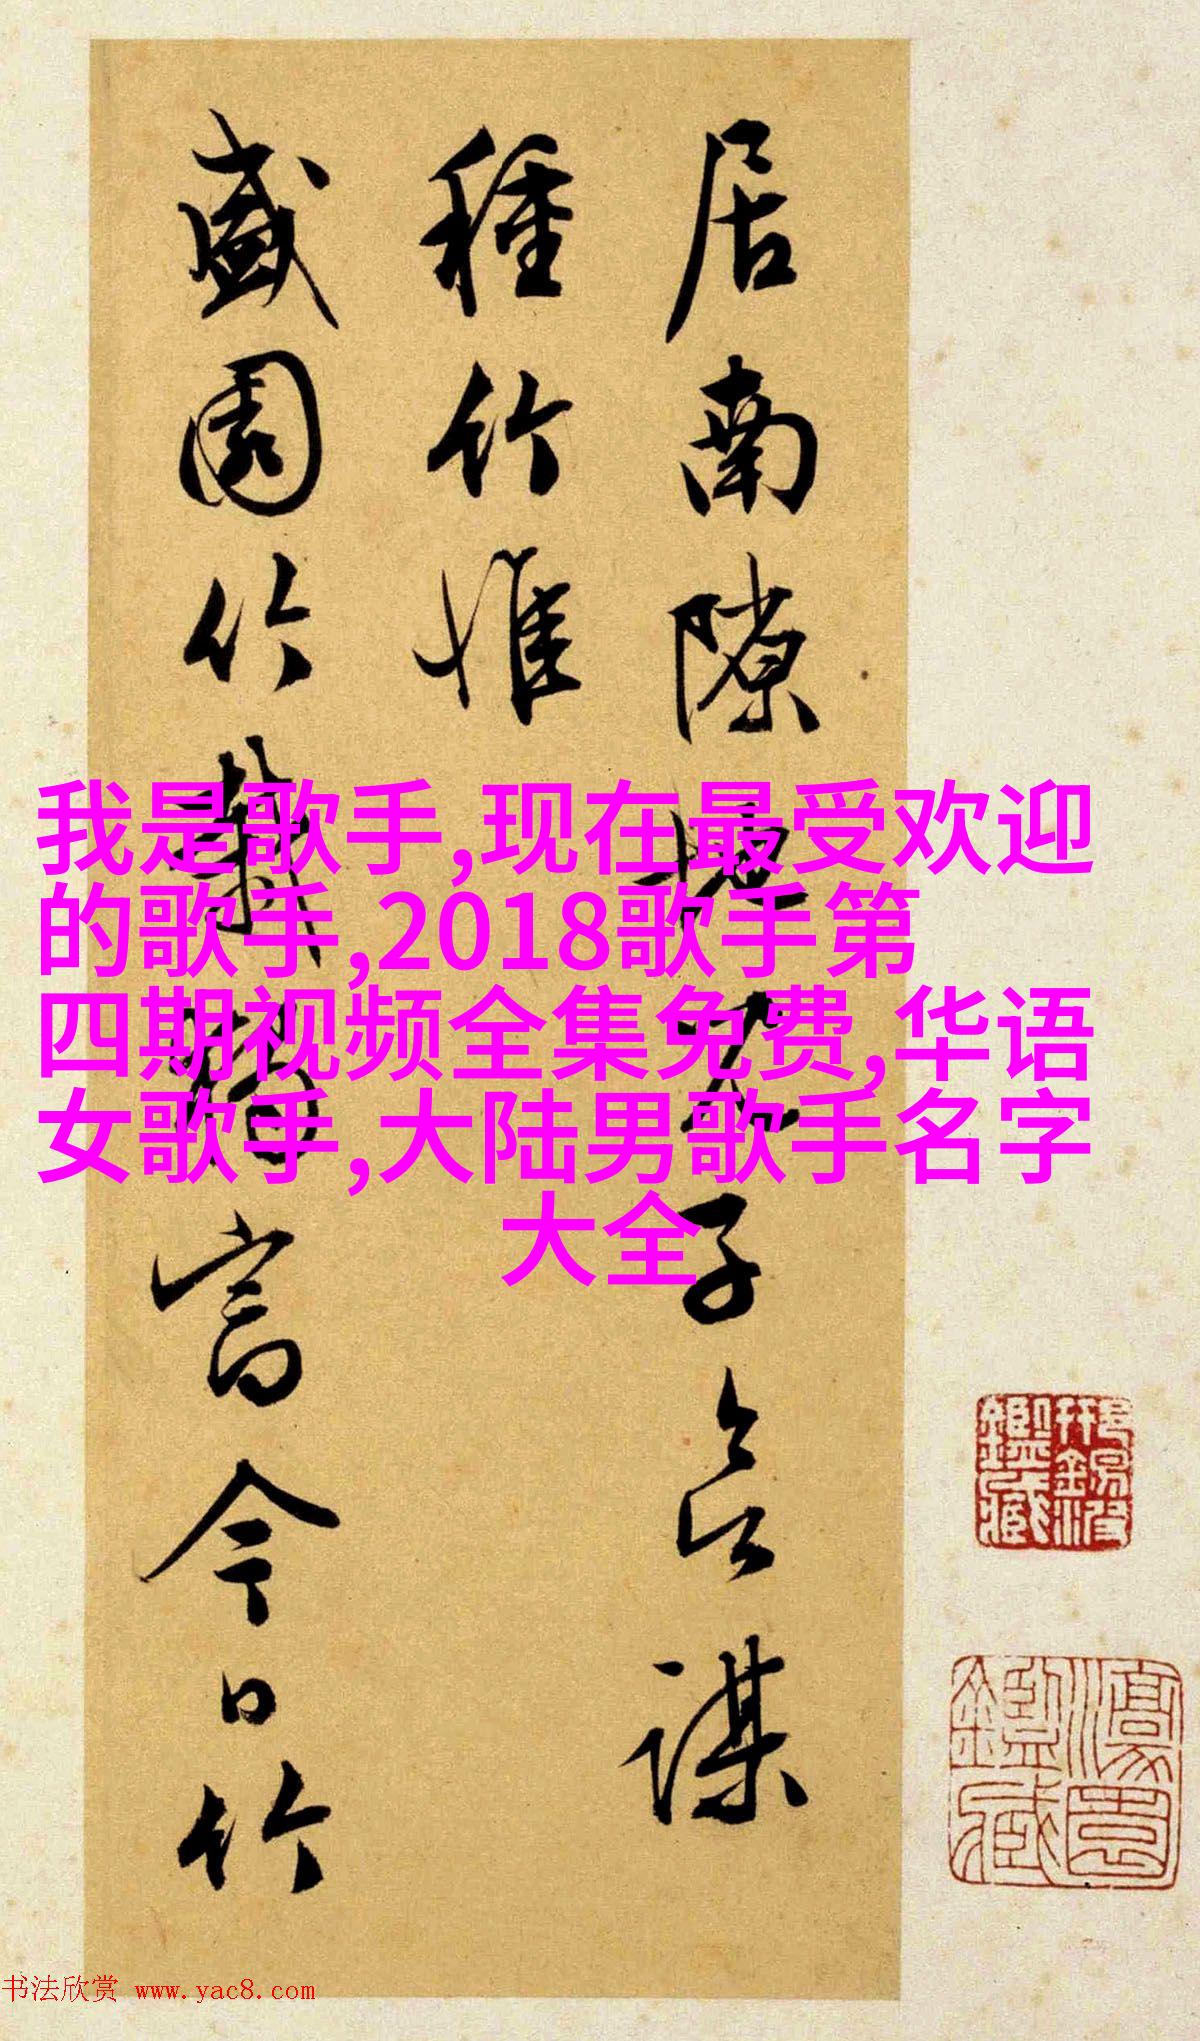 居南隙地子謀
種竹惟
盛園竹富今日竹
我是歌手,现在最受欢迎
的歌手,2018歌手第
四期视频全集免费,华语
女歌手,大陆男歌手名字
大全
鑑藏
鑑藏
书法欣赏 www.yac8.com